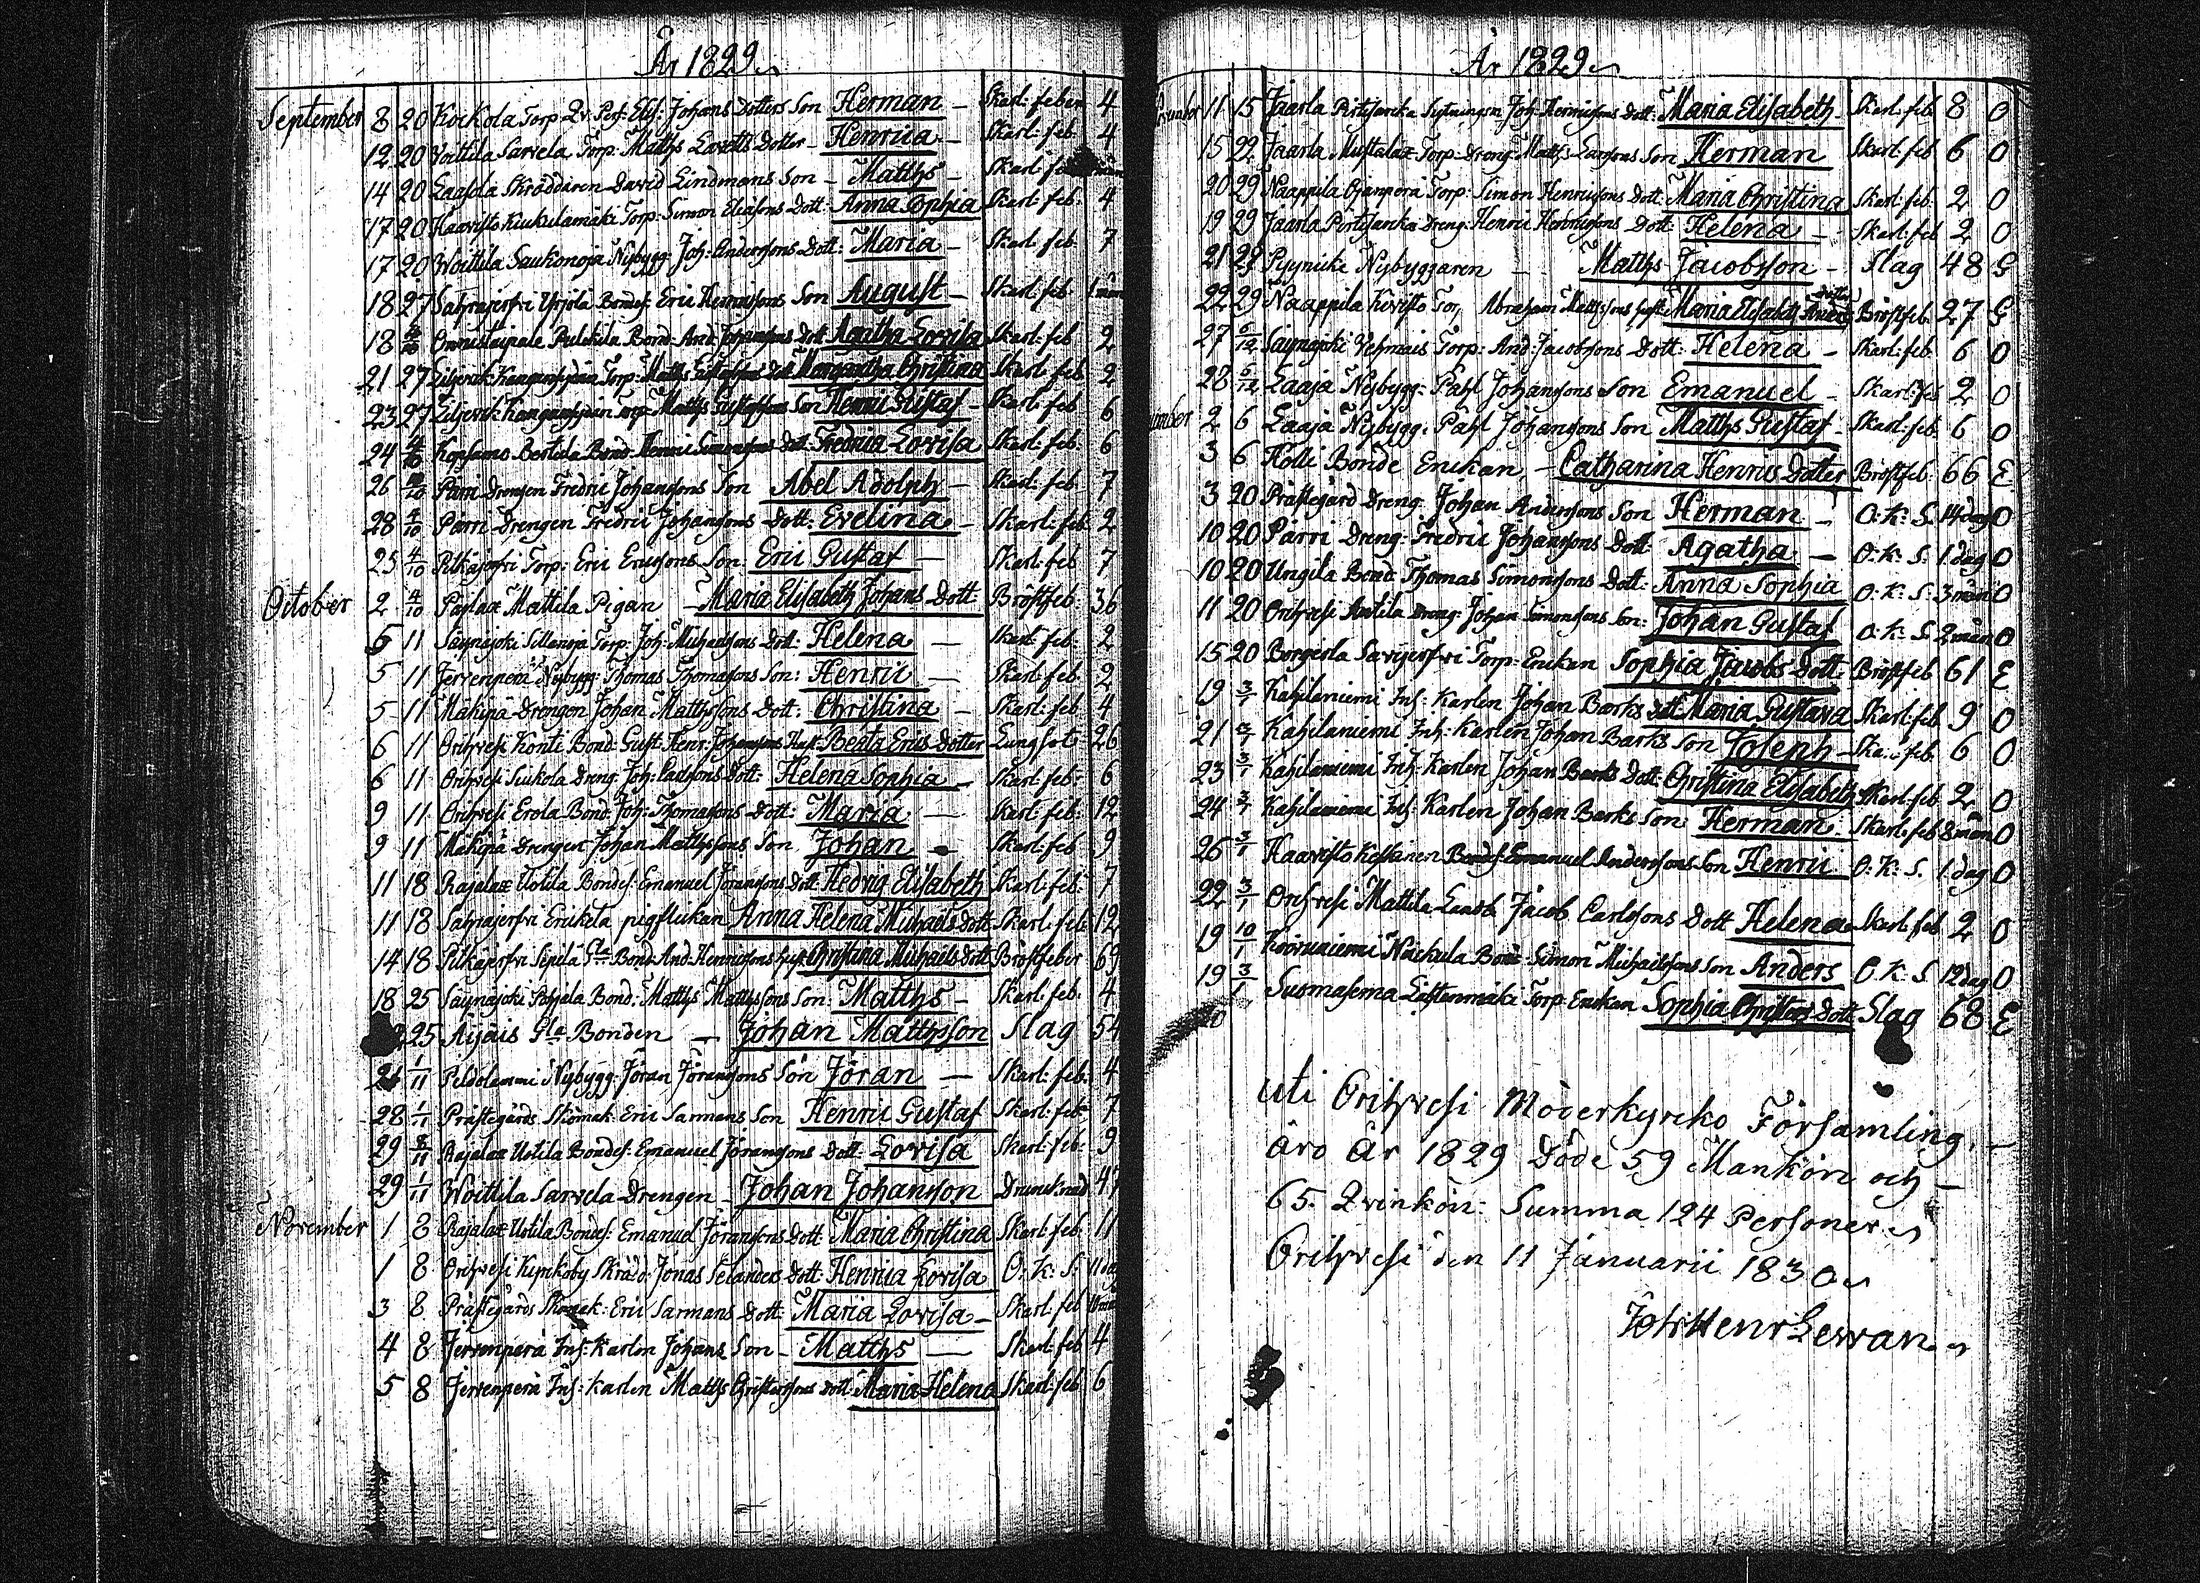 År 1829
September 8 20 Kockola Torp. Qv: Pers: Elis: Johans Dotters Son Herman — Skarl: feber 4
12 20 Voittila Sarvela Torp: Matths Dotter — Henrica — Skarl: feb: 4
14 20 Skräddaren David Lindmans Son — Matths — Skarl:
17 20 Haavisto Kiukulamäki Torp: Simon Eliasons Dott: Anna Sophia Skarl: feb: 4
17 20 Woittila Saukonoja Nybygg: Joh: Anderssons Dott: Maria — Skarl: feb: 7
18 27 Sahrajerfvi Yrjölä Bondes: Eric Henricssons Son August — Skarl: feb:
18 4/10 Onnistaipale Pulckila Bond: And: Johanssons Dott Agatha Lovisa Skarl: feb 2
21 27 Torp: Matths Gustafssons Dott Margaretha Christina Skarl: feb 2
23 27 Torp: Matths Gustafssons Son Henric Gustaf — Skarl: feb 6
24 4/10 Kopsamo Bertila Bond Henric Simonssons Dott: Fredrica Lovisa Skarl: feb. 6
26 Pärri Drengen Fredric Johanssons Son Abel Adolph — Skarl: feb. 7
28 4/10 Pärri Drengen Fredric Johanssons Dott: Evelina — Skarl: feb: 2
25 4/10 Pitkäjerfvi Torp: Eric Ericssons Son: Eric Gustaf — Skarl: feb 7
October 2 4/10 Pajlax Mattila Pigan — Maria Elisabeth Johans Dott: Bröstfeb: 36
5 11 Säynäjoki Sillanoja Torp: Joh: Michaelssons Dott: Helena — Skarl: feb: 2
5 11 Jervenperä Nybygg: Thomas Thomassons Son: Henric — Skarl: feb: 2
5 11 Mähipä Drengen Johan Matthssons Dott: Christina — Skarl: feb: 4
6 11 Orihvesi Konti Bond: Gust: Henr: Johanssons Hust: Beata Erics Dotter Lungsot: 26
6 11 Orihvesi Suckola Dreng: Joh: Dott: Helena Sophia — Skarl: feb: 6
9 11 Orihvesi Erola Bond: Joh: Thomassons Dott: Maria — Skarl: feb: 12
9 11 Mähipä Drengen Johan Matthssons Son, Johan — Skarl: feb 9
11 18 Rajalax Uotila Bondes: Emanuel Göranssons Dott Hedvig Elisabeth Skarl: feb: 7
11 18 Sahrajerfvi Erickela pigflickan Anna Helena Michaels Dott: Skarl: feb: 12
14 18 Pitkäjerfvi Sepilä Gla Bond: And: Henricssons hust: Christina Michaels Dott: Bröstfeber 69
18 25 Säynäjoki Pohjela Bond: Matths Matthssons Son: Matths — Skarl: feb: 4
25 Äijäis Gla Bonden — Johan Matthsson Slag 54
26 1/11 Peldolammi Nybygg: Jöran Jöranssons Son Jöran — Skarl: feb: 4
28 1/11 Prästegårds Skomak: Eric Sarmans Son Henric Gustaf Skarl: feb: 7
29 8/11 Rajalax Uotila Bondes: Emanuel Jöranssons Dott: Lovisa Skarl: feb: 9
29 1/11 Woittila Sarvela Drengen — Johan Johansson Drunknad 47
November 1 8 Rajalax Uotila Bondes: Emanuel Jöranssons Dott: Maria Christina Skarl: feb: 11
1 8 Orihvesi Kyrkoby Skrädd: Jonas Selanders Dott: Henrica Lovisa O: K: S: 11 dag
3 8 Prästegårds Skomak: Eric Sarmans Dott: Maria Lovisa — Skarl: feb
4 8 Jerrenperä Inh: Karlen Johans Son — Matths — Skarl: feb: 4
5 8 Jerrenperä Inh: Karlen Matths Christerssons Dott: Maria Helena Skarl: feb 6
År 1829
11 15 Jaarla Pirttijanka Joh: Henricssons Dott: Maria Elisabeth — Skarl: feb: 8 O
15 22 Jaarla Mustalax Torp: Dreng: Matths Larssons Son Herman Skarl: feb: 6 O
20 29 Naappila Ojanperä Torp: Simon Henricssons Dott: Maria Christina Skarl: feb: 2 O
19 29 Jaarla Pirttijanka Dreng: Henric Henricssons Dott: Helena — Skarl: feb 2 O
21 29 Pyynicke Nybyggaren — Matths Jacobsson — Slag 48 G
22 29 Naappila Kivisto Tor, Abraham Mattssons hust: Maria Elisabeth Anders Dotter Bröstfeb: 27 G
27 6/12 Säynäjoki Vehmais Torp: And: Jacobssons Dott: Helena — Skarl: feb: 6 O
28 6/12 Laaja Nybygg: Påhl Johanssons Son Emanuel — Skarl: feb 2 O
2 6 Laaja Nybygg: Påhl Johanssons Son Matths Gustaf — Skarl: feb: 6 O
3 6 Holli Bonde Enckan, — Catharina Henrics Dotter Bröstfeb: 66 E
3 20 Prästegård Dreng: Johan Anderssons Son Herman — O: K: S. 14 dag O
10 20 Pärri Dreng: Fredric Johanssons Dott: Agatha — O: K: S. 1 dag O
10 20 Ungila Bond: Thomas Simonssons Dott: Anna Sophia O: K: S. 3 mån O
11 20 Orihvesi Antila Dreng: Johan Simonssons Son: Johan Gustaf O: K: S. 2 mån O
15 20 Torp: Enckan Sophia Jacobs Dott: Bröstfeb 61 E
19 3/1 Kahilaniemi Inh: Karlen Johan Barks Dott: Maria Gustava Skarl: feb: 9 O
21 3/1 Kahilaniemi Inh: Karlen Johan Barks Son Joseph — feb: 6 O
23 3/1 Kahilaniemi Inh: Karlen Johan Barks Dott: Christina Elisabeth Skarl: feb: 2 O
24 3/1 Kahilaniemi Inh: Karlen Johan Barks Son: Herman Skarl: feb 8 mån O
26 3/1 Haavisto Keskinen Bondes: Emanuel Anderssons Son Henric O: K: S. 1 dag O
22 3/1 Orihvesi Mattila Jacob Carlssons Dott: Helena Skarl: feb 2 O
19 10/1 Simon Michaelssons Son Anders O: K: S. 12 dag O
19 3/1 Susmasema Torp: Enckan Sophia Christers Dott: Slag 68 E
uti Orihvesi Moderkyrcko Församling,
äro År 1829 Döde 59 Mankön och
65. Qvinkön: Summa 124 Personer
Orihvesi den 11 Januarii 1830